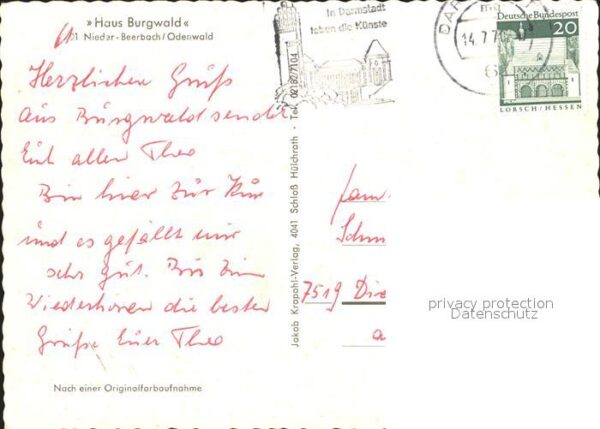 »Haus Burgwald«
61 Nieder-Beerbach/Odenwald
Herzlichen Gruß
aus Burgwald sendet
Euch allen Theo
Bin hier zur Kur
und es gefällt mir
sehr gut. Bis zum
Wiederhören die besten
Grüße Euer Theo
Nach einer Originalfarbaufnahme
Jakob Krapohl-Verlag, 4041 Schloß Hülchrath · Tel. 02182/7104
In Darmstadt
leben die Künste
14.7.70
Deutsche Bundespost
20
LORSCH/HESSEN
Fam
Schm
7519
privacy protection
Datenschutz